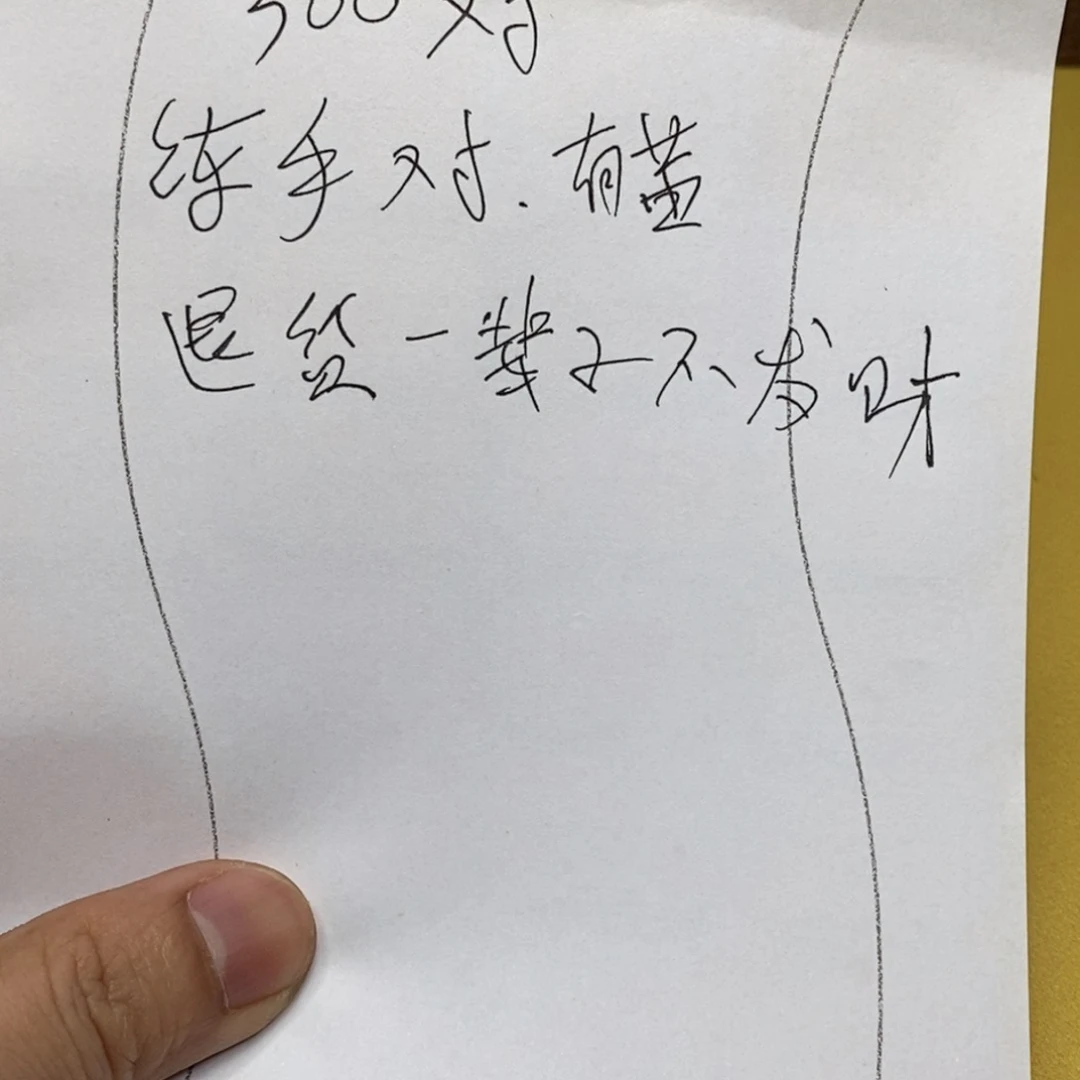 300对
练手对.有盖
退货一辈子不发财